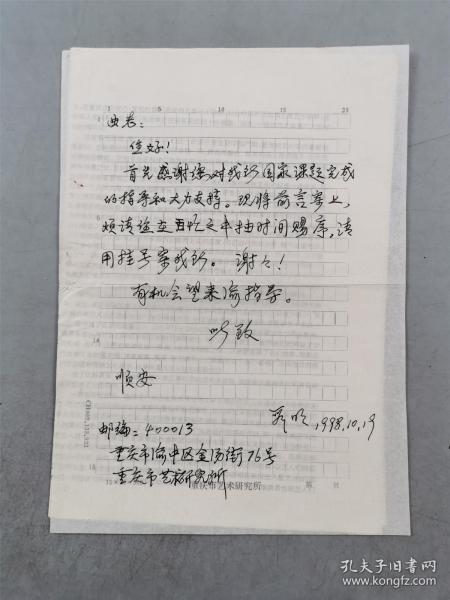 1 5 10 15 20
曲老：
您好！
首先感谢您对我所国家课题完成
的指导和大力支持。现将前言寄上，
烦请您在百忙之中抽时间赐序，请
用挂号寄我所。谢谢！
有机会望来渝指导。
此致
顺安
1998.10.19
邮编：400013
重庆市渝中区金汤街76号
重庆市艺术研究所
重庆市艺术研究所
孔夫子旧书网
www.kongfz.com